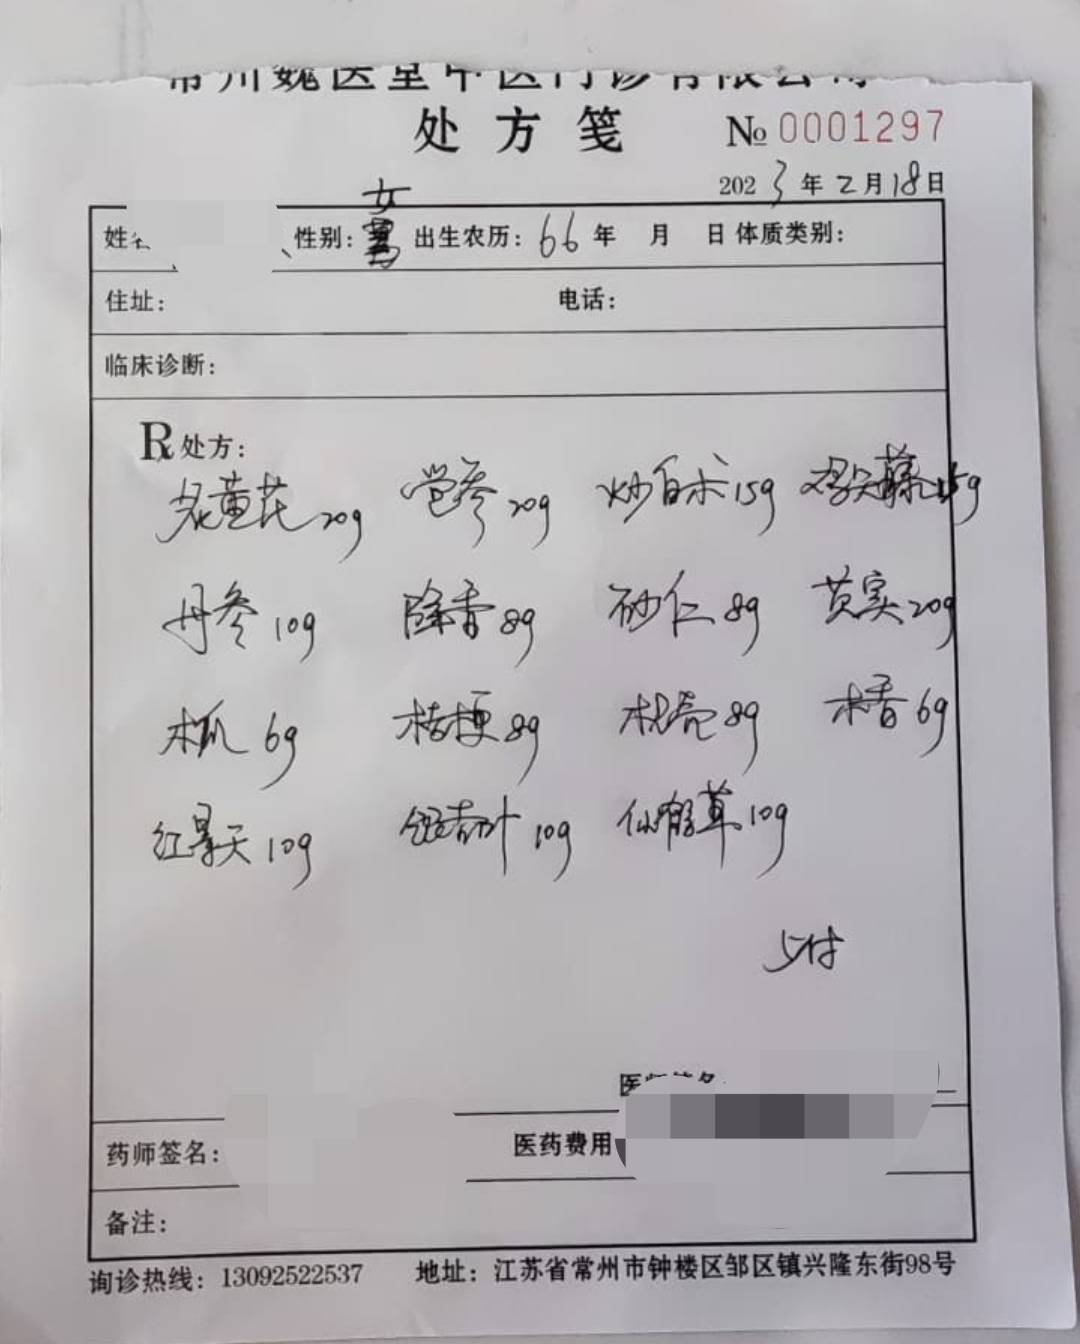 常州魏医堂中医门诊有限公司
处方笺 № 0001297
2023年2月18日
女
姓名 性别: 出生农历: 66年 月 日 体质类别:
住址: 电话:
临床诊断:
R 处方:
炙黄芪20g 党参20g 炒白术15g 鸡矢藤15g
丹参10g 降香8g 砂仁8g 芡实20g
木瓜6g 桔梗8g 枳壳8g 木香6g
红景天10g 银杏叶10g 仙鹤草10g
医师签名
药师签名: 医药费用
备注:
询诊热线: 13092522537 地址: 江苏省常州市钟楼区邹区镇兴隆东街98号